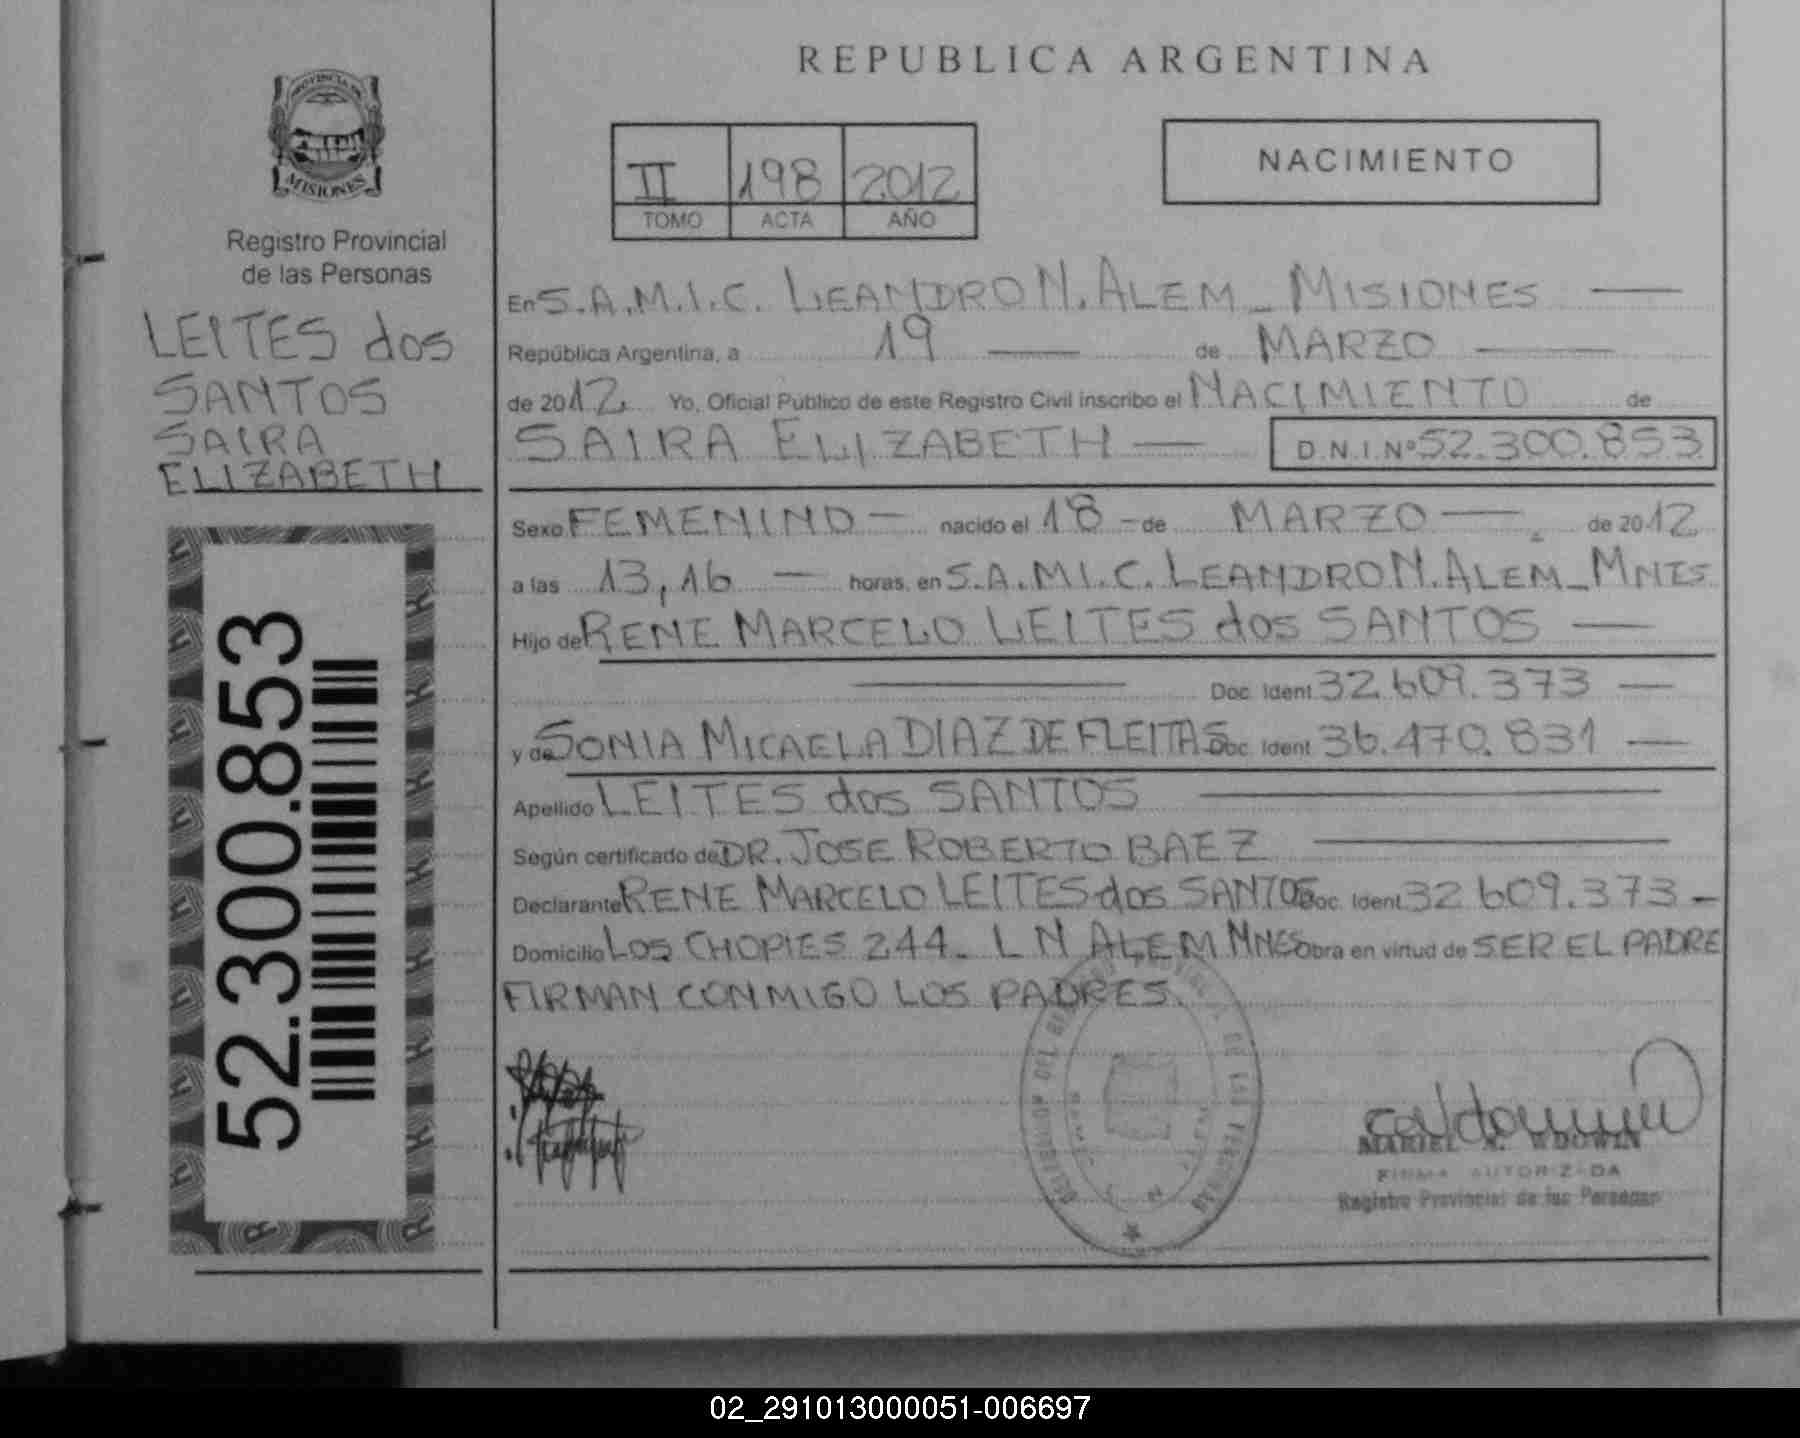 REPUBLICA ARGENTINA
PROVINCIA DE
MISIONES
Registro Provincial
de las Personas
II 198 2012
TOMO ACTA AÑO
NACIMIENTO
LEITES dos
SANTOS
SAIRA
ELIZABETH
52.300.853
En S.A.M.I.C. LEANDRO N. ALEM - MISIONES
República Argentina, a 19 de MARZO
de 2012 Yo, Oficial Público de este Registro Civil inscribo el NACIMIENTO de
SAIRA ELIZABETH D.N.I. Nº 52.300.853
Sexo FEMENINO nacido el 18 de MARZO de 2012
a las 13,16 horas, en S.A.M.I.C. LEANDRO N. ALEM - MNES
Hijo de RENE MARCELO LEITES dos SANTOS
Doc. Ident 32.609.373
y de SONIA MICAELA DIAZ DE FLEITAS Doc. Ident 36.470.831
Apellido LEITES dos SANTOS
Según certificado de DR. JOSE ROBERTO BAEZ
Declarante RENE MARCELO LEITES dos SANTOS Doc. Ident 32.609.373
Domicilio LOS CHOPIES 244 - L N ALEM MNES Obra en virtud de SER EL PADRE
FIRMAN CONMIGO LOS PADRES.
FIRMA AUTORIZADA
Registro Provincial de las Personas
02_291013000051-006697